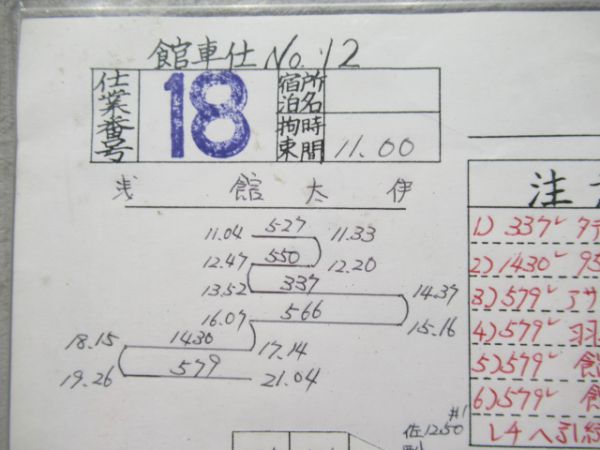 館車仕 No.12
仕業番号 18 宿泊所名
拘束時間 11.00
浅 館 太 伊
11.04 527 11.33
12.47 550 12.20
13.52 337 14.37
16.07 566 15.16
18.15 1430 17.14
19.26 579 21.04
注
1) 337レ
2) 1430レ 95
3) 579レ アサ
4) 579レ 羽
5) 579レ 館
6) 579レ 館
レチへ引継
#1
佐1250